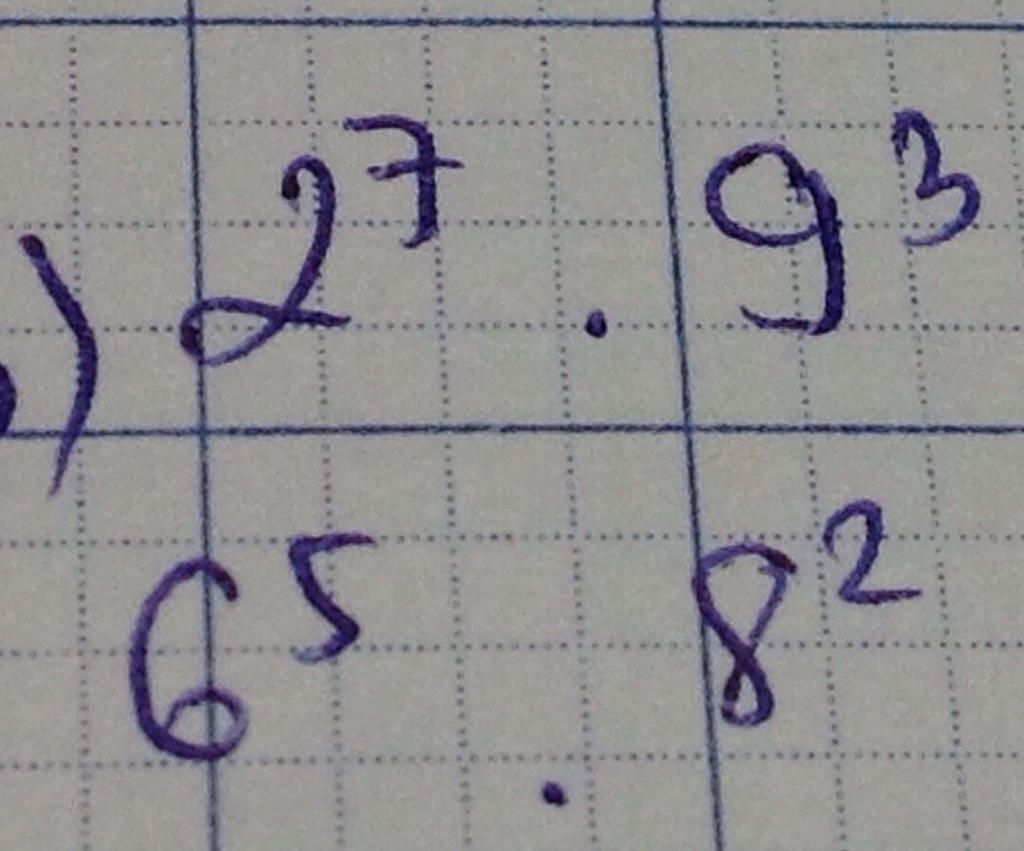 ) 2⁷ . 9³
6⁵ . 8²